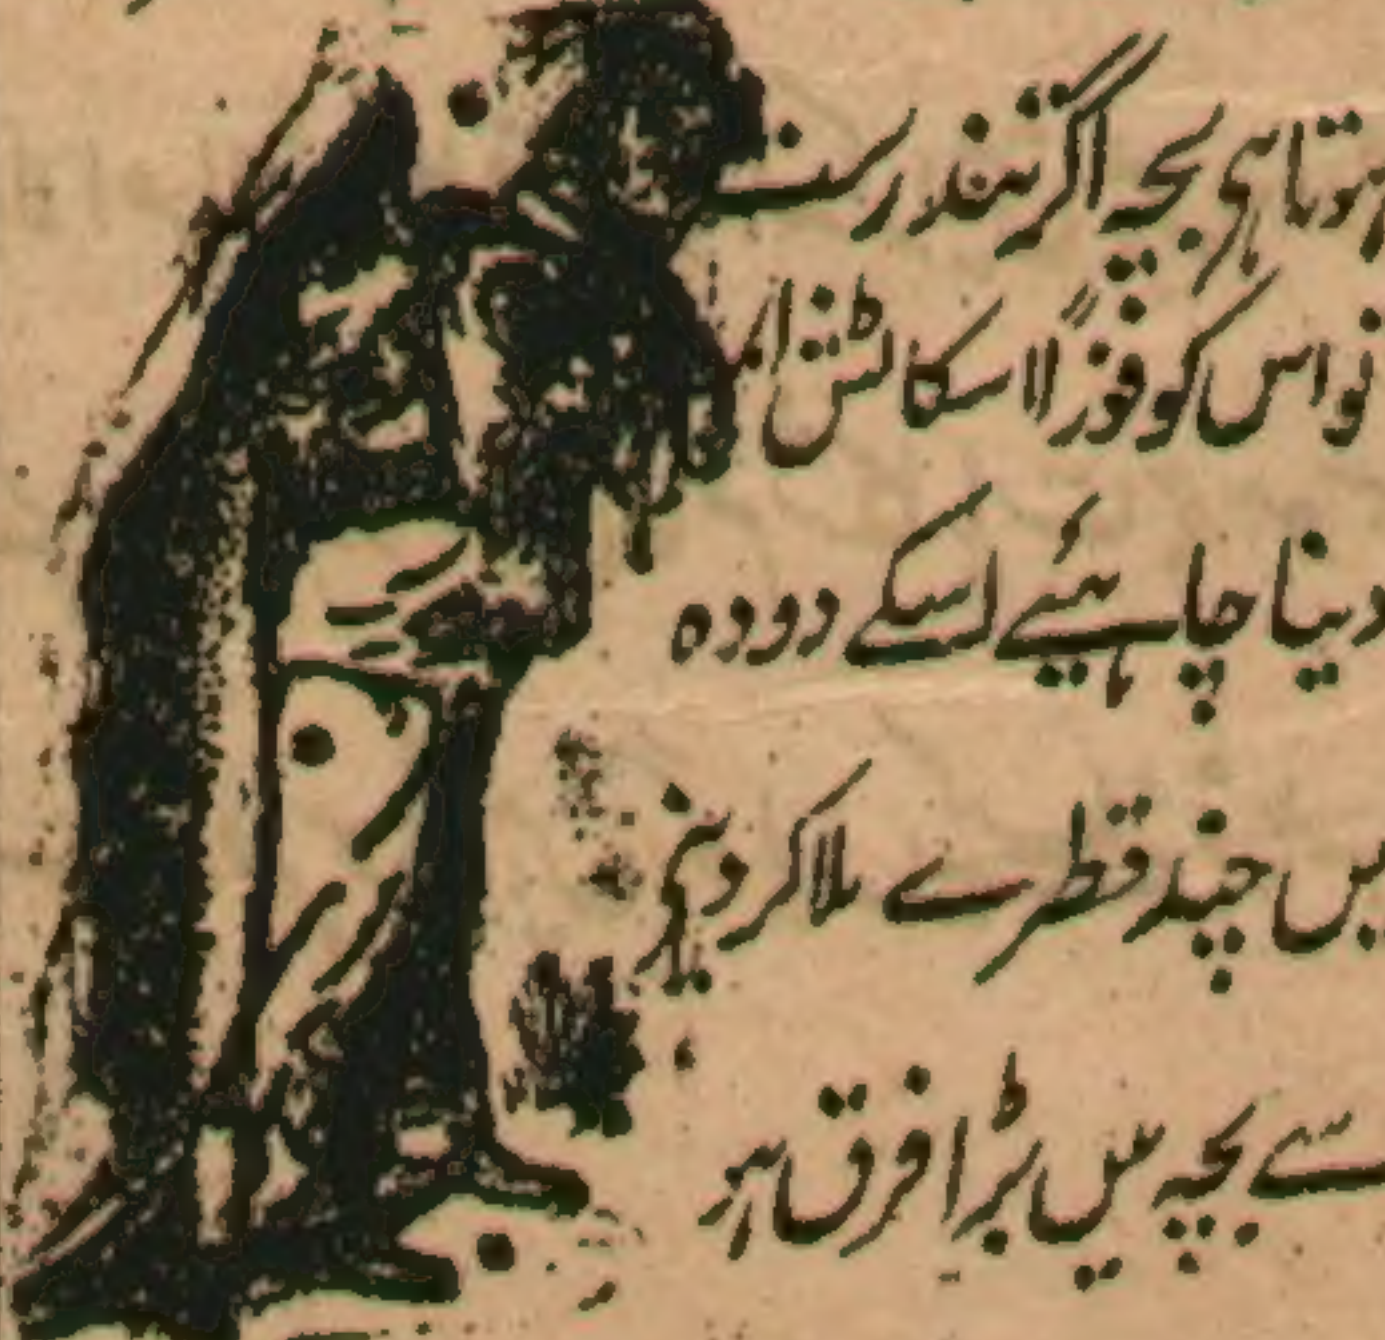 ہوتا ہی بچہ اگر تندرست
تو اس کو فوراً اسکاٹش
دینا چاہئیے اسکے دودہ
میں چند قطرے ملا کر دینے
سے بچہ میں بڑا فرق